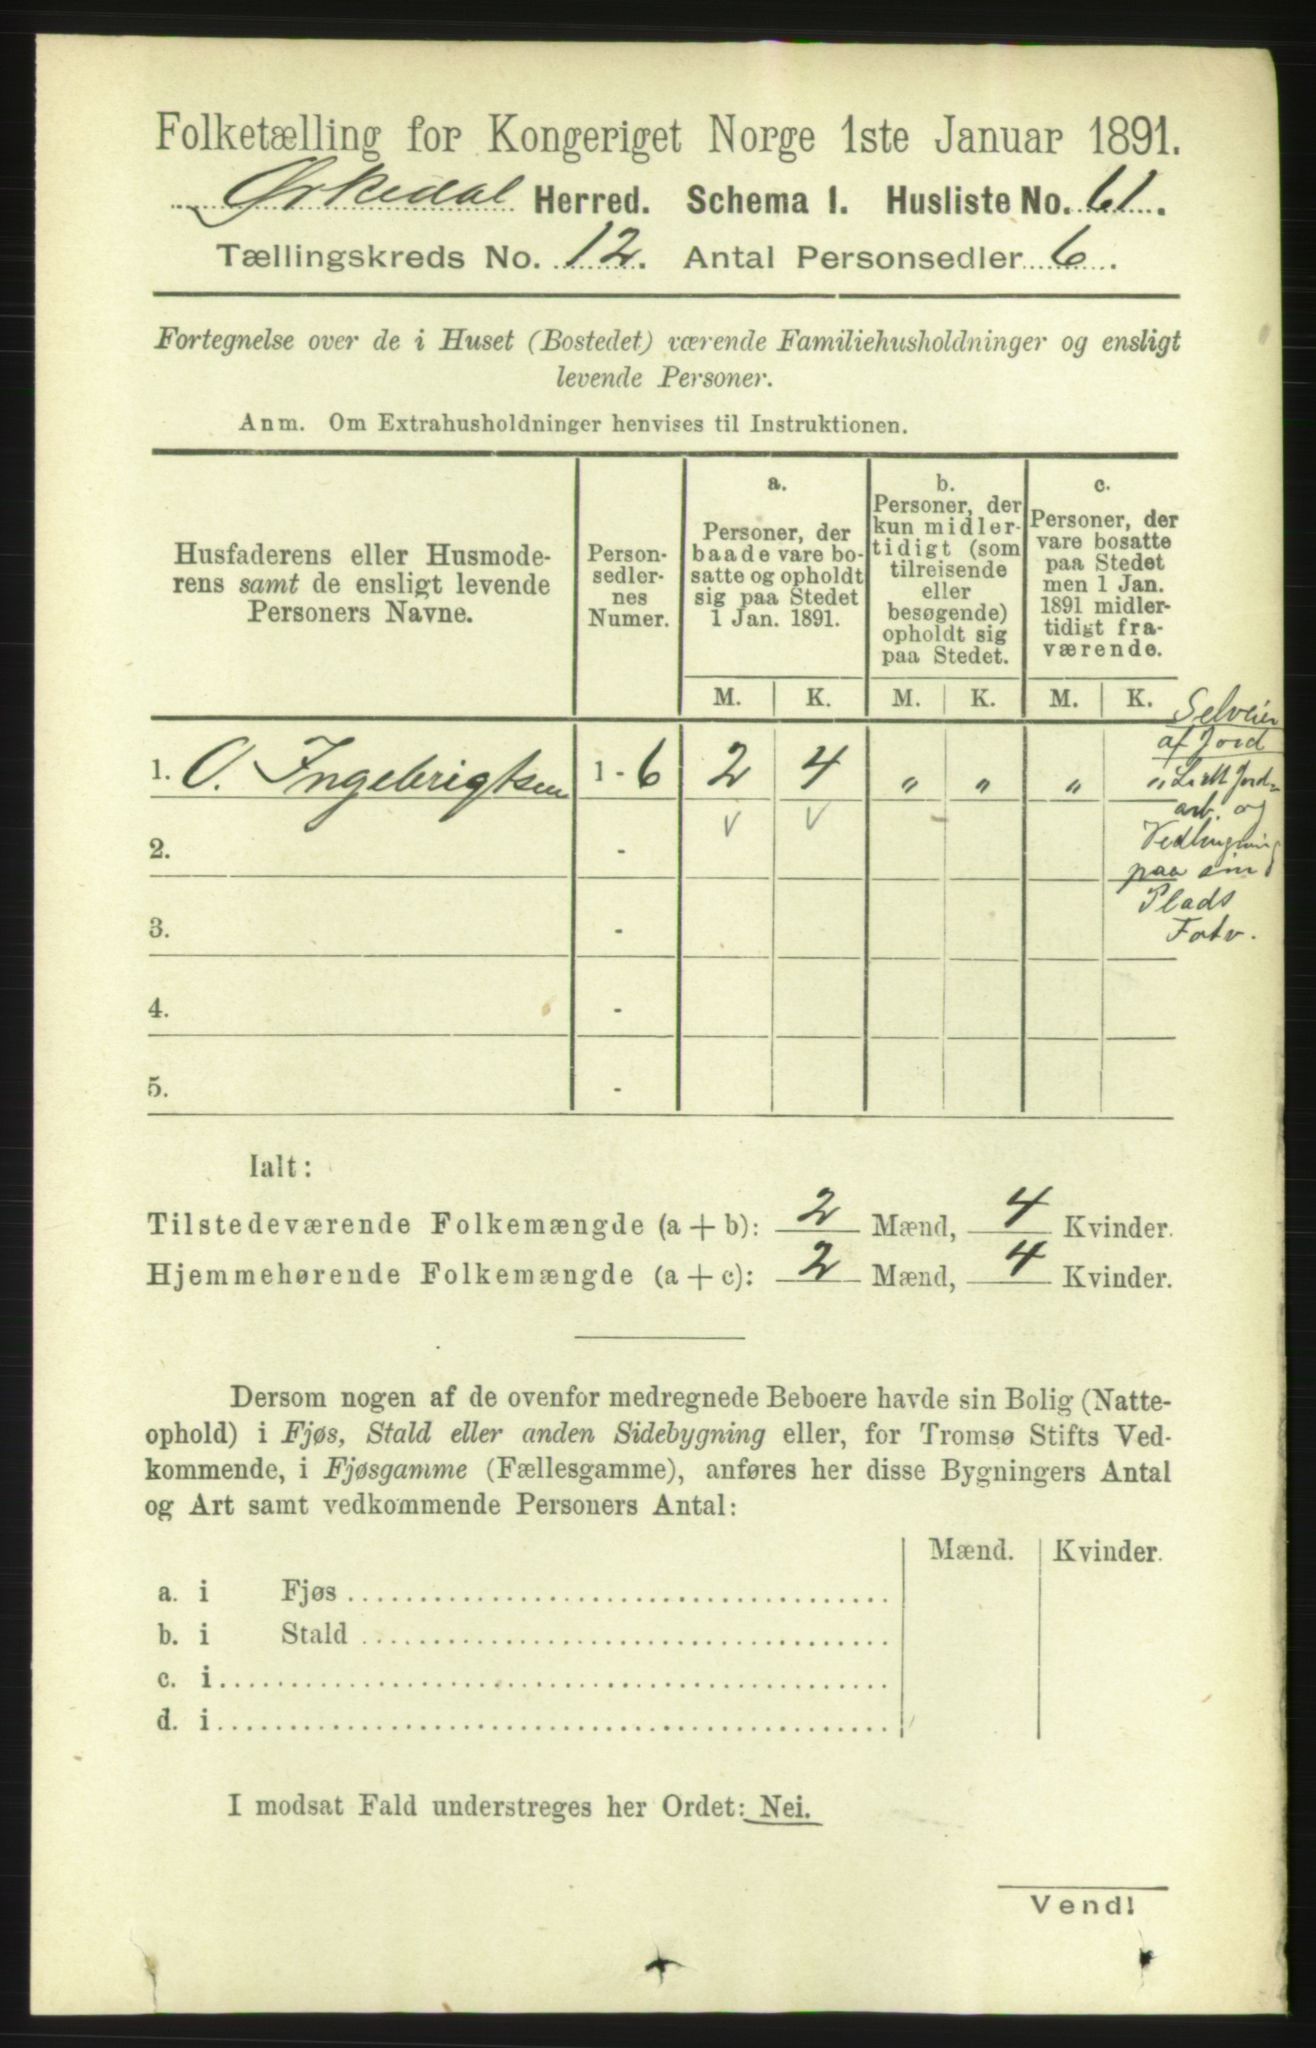 Folketælling for Kongeriget Norge 1ste Januar 1891.
Ørkedal Herred. Schema 1. Husliste No. 61.
Tællingskreds No. 12. Antal Personsedler 6.
Fortegnelse over de i Huset (Bostedet) værende Familiehusholdninger og ensligt
levende Personer.
Anm. Om Extrahusholdninger henvises til Instruktionen.
Husfaderens eller Husmode-
rens samt de ensligt levende
Personers Navne.
Person-
sedler-
nes
Numer.
a.
Personer, der
baade vare bo-
satte og opholdt
sig paa Stedet
1 Jan. 1891.
b.
Personer, der
kun midler-
tidigt (som
tilreisende
eller
besøgende)
opholdt sig
paa Stedet.
c.
Personer, der
vare bosatte
paa Stedet
men 1 Jan.
1891 midler-
tidigt fra-
værende.
M. K. M. K. M. K.
1. O. Ingebrigtsen 1 - 6 2 4 „ „ „ „
Selveier
af Jord
Lidt Jord-
arb. og
paa sin
Plads
Fortv.
2. -
3. -
4. -
5. -
Ialt:
Tilstedeværende Folkemængde (a + b): 2 Mænd, 4 Kvinder.
Hjemmehørende Folkemængde (a + c): 2 Mænd, 4 Kvinder.
Dersom nogen af de ovenfor medregnede Beboere havde sin Bolig (Natte-
ophold) i Fjøs, Stald eller anden Sidebygning eller, for Tromsø Stifts Ved-
kommende, i Fjøsgamme (Fællesgamme), anføres her disse Bygningers Antal
og Art samt vedkommende Personers Antal:
Mænd. Kvinder.
a. i Fjøs
b. i Stald
c. i
d. i
I modsat Fald understreges her Ordet: Nei.
Vend!